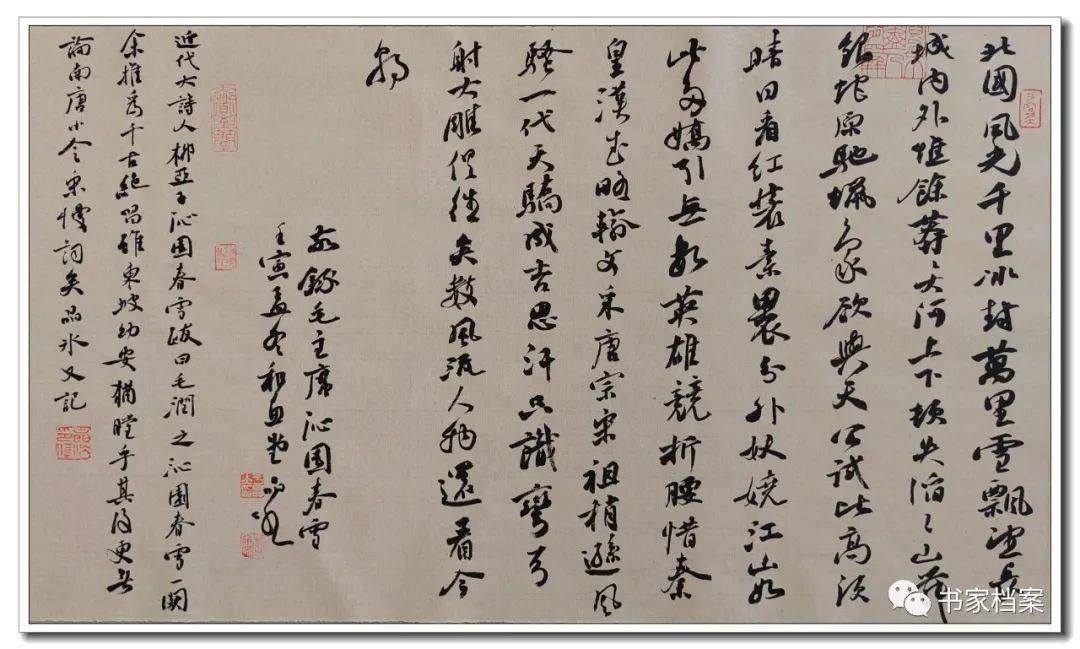 北國風光千里冰封萬里雪飄望長
城内外惟餘莽〻大河上下頓失滔〻山舞
銀蛇原馳蠟象欲與天公試比高須
晴日看紅裝素裹分外妖嬈江山如
此多嬌引無數英雄競折腰惜秦
皇漢武略輸文采唐宗宋祖稍遜風
騷一代天驕成吉思汗只識彎弓
射大雕俱往矣數風流人物還看今
朝
敬録毛主席沁園春雪
壬寅孟冬和且堂
近代大詩人柳亞子沁園春雪跋曰毛潤之沁園春雪一闋
余推爲千古絶唱雖東坡幼安猶瞠乎其後更無
論南唐小令宋慢詞矣品水又記
书家档案